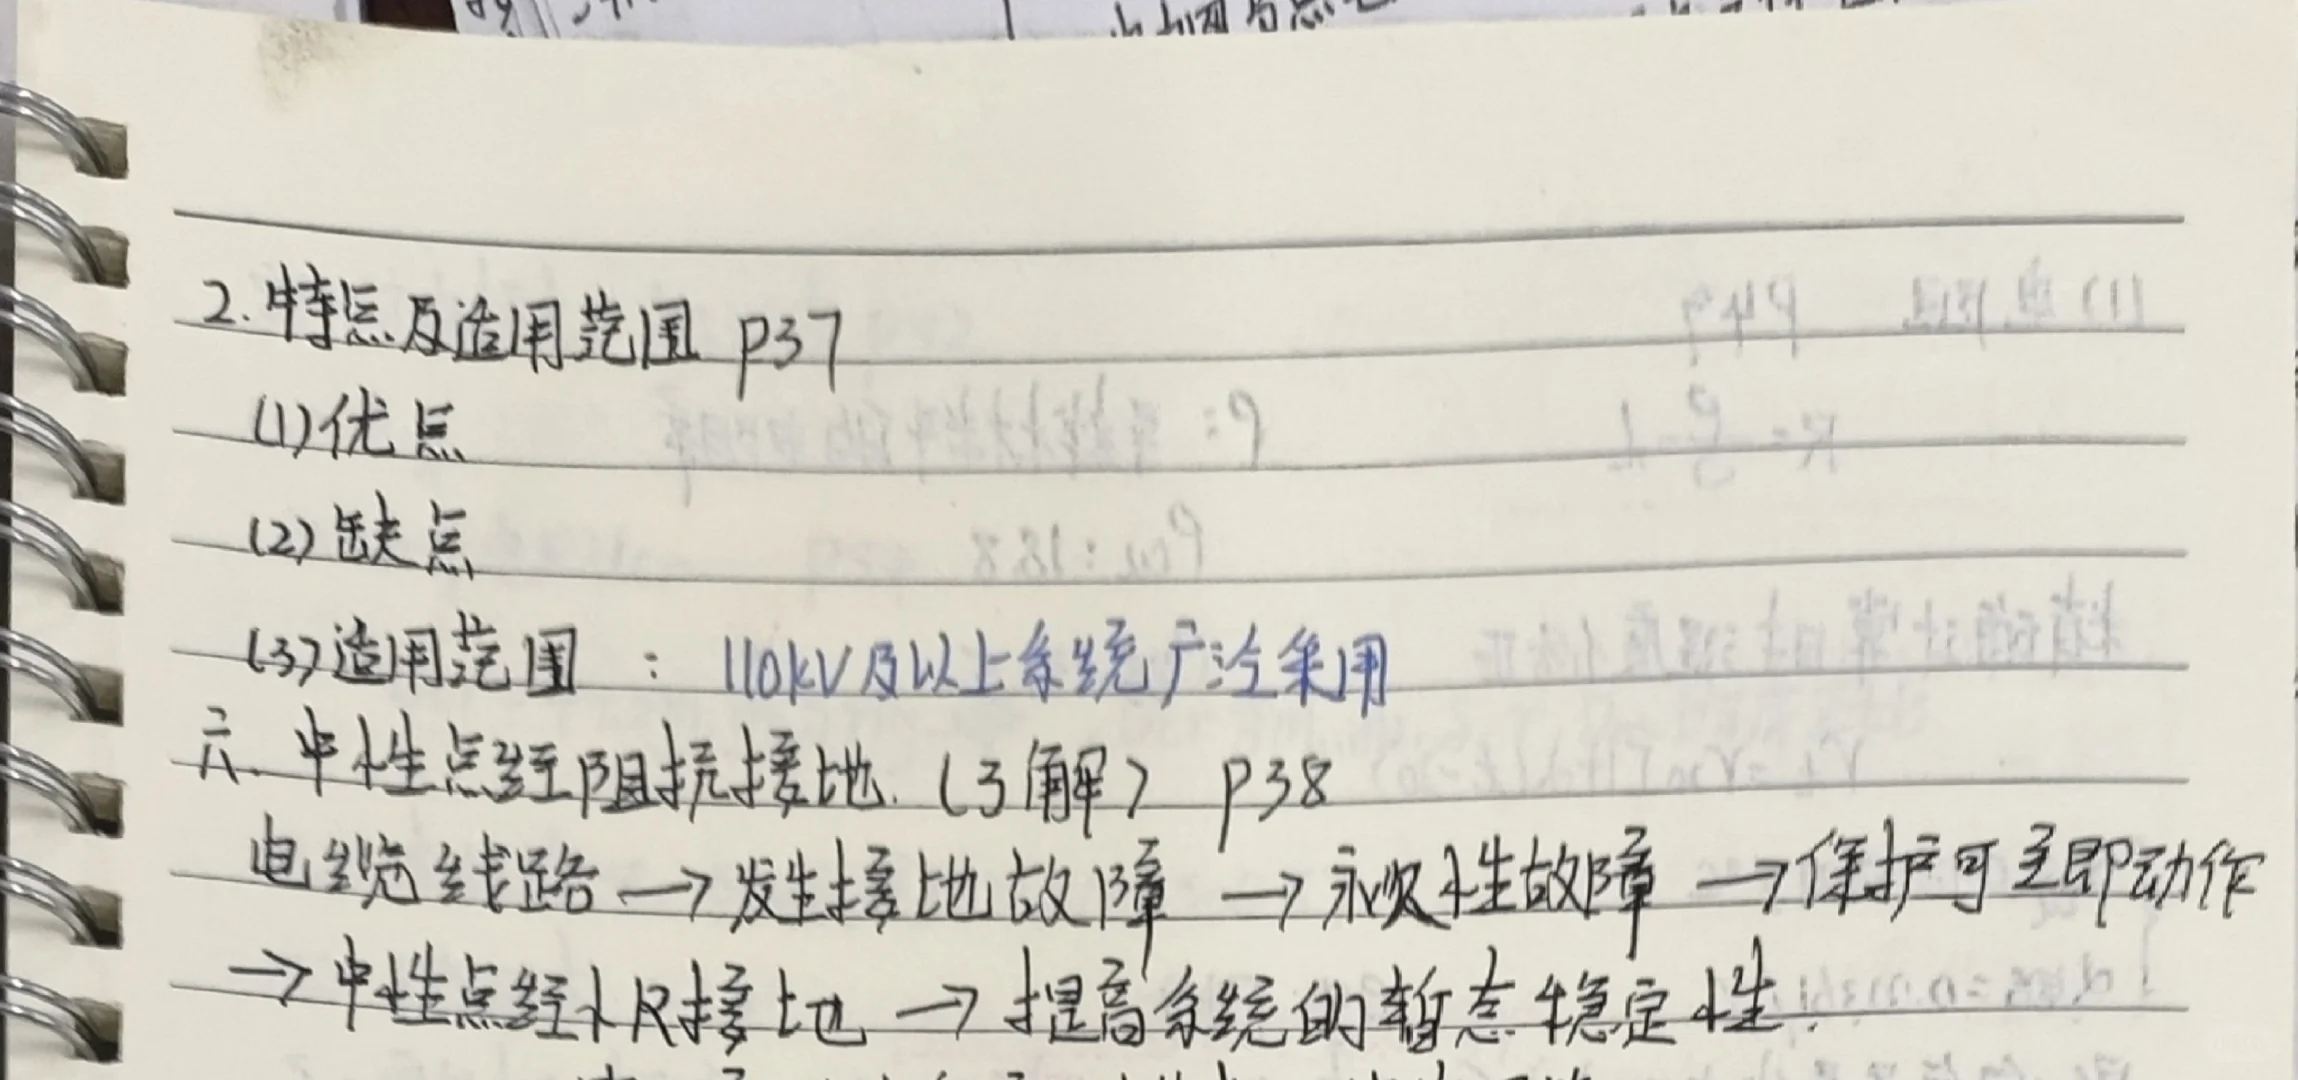 2.特点及适用范围 P37
(1)优点
(2)缺点
(3)适用范围 : 110kV及以上系统广泛采用
六、中性点经阻抗接地.(了解) P38
电缆线路→发生接地故障→永久性故障→保护可立即动作
→中性点经小R接地→提高系统的暂态稳定性.